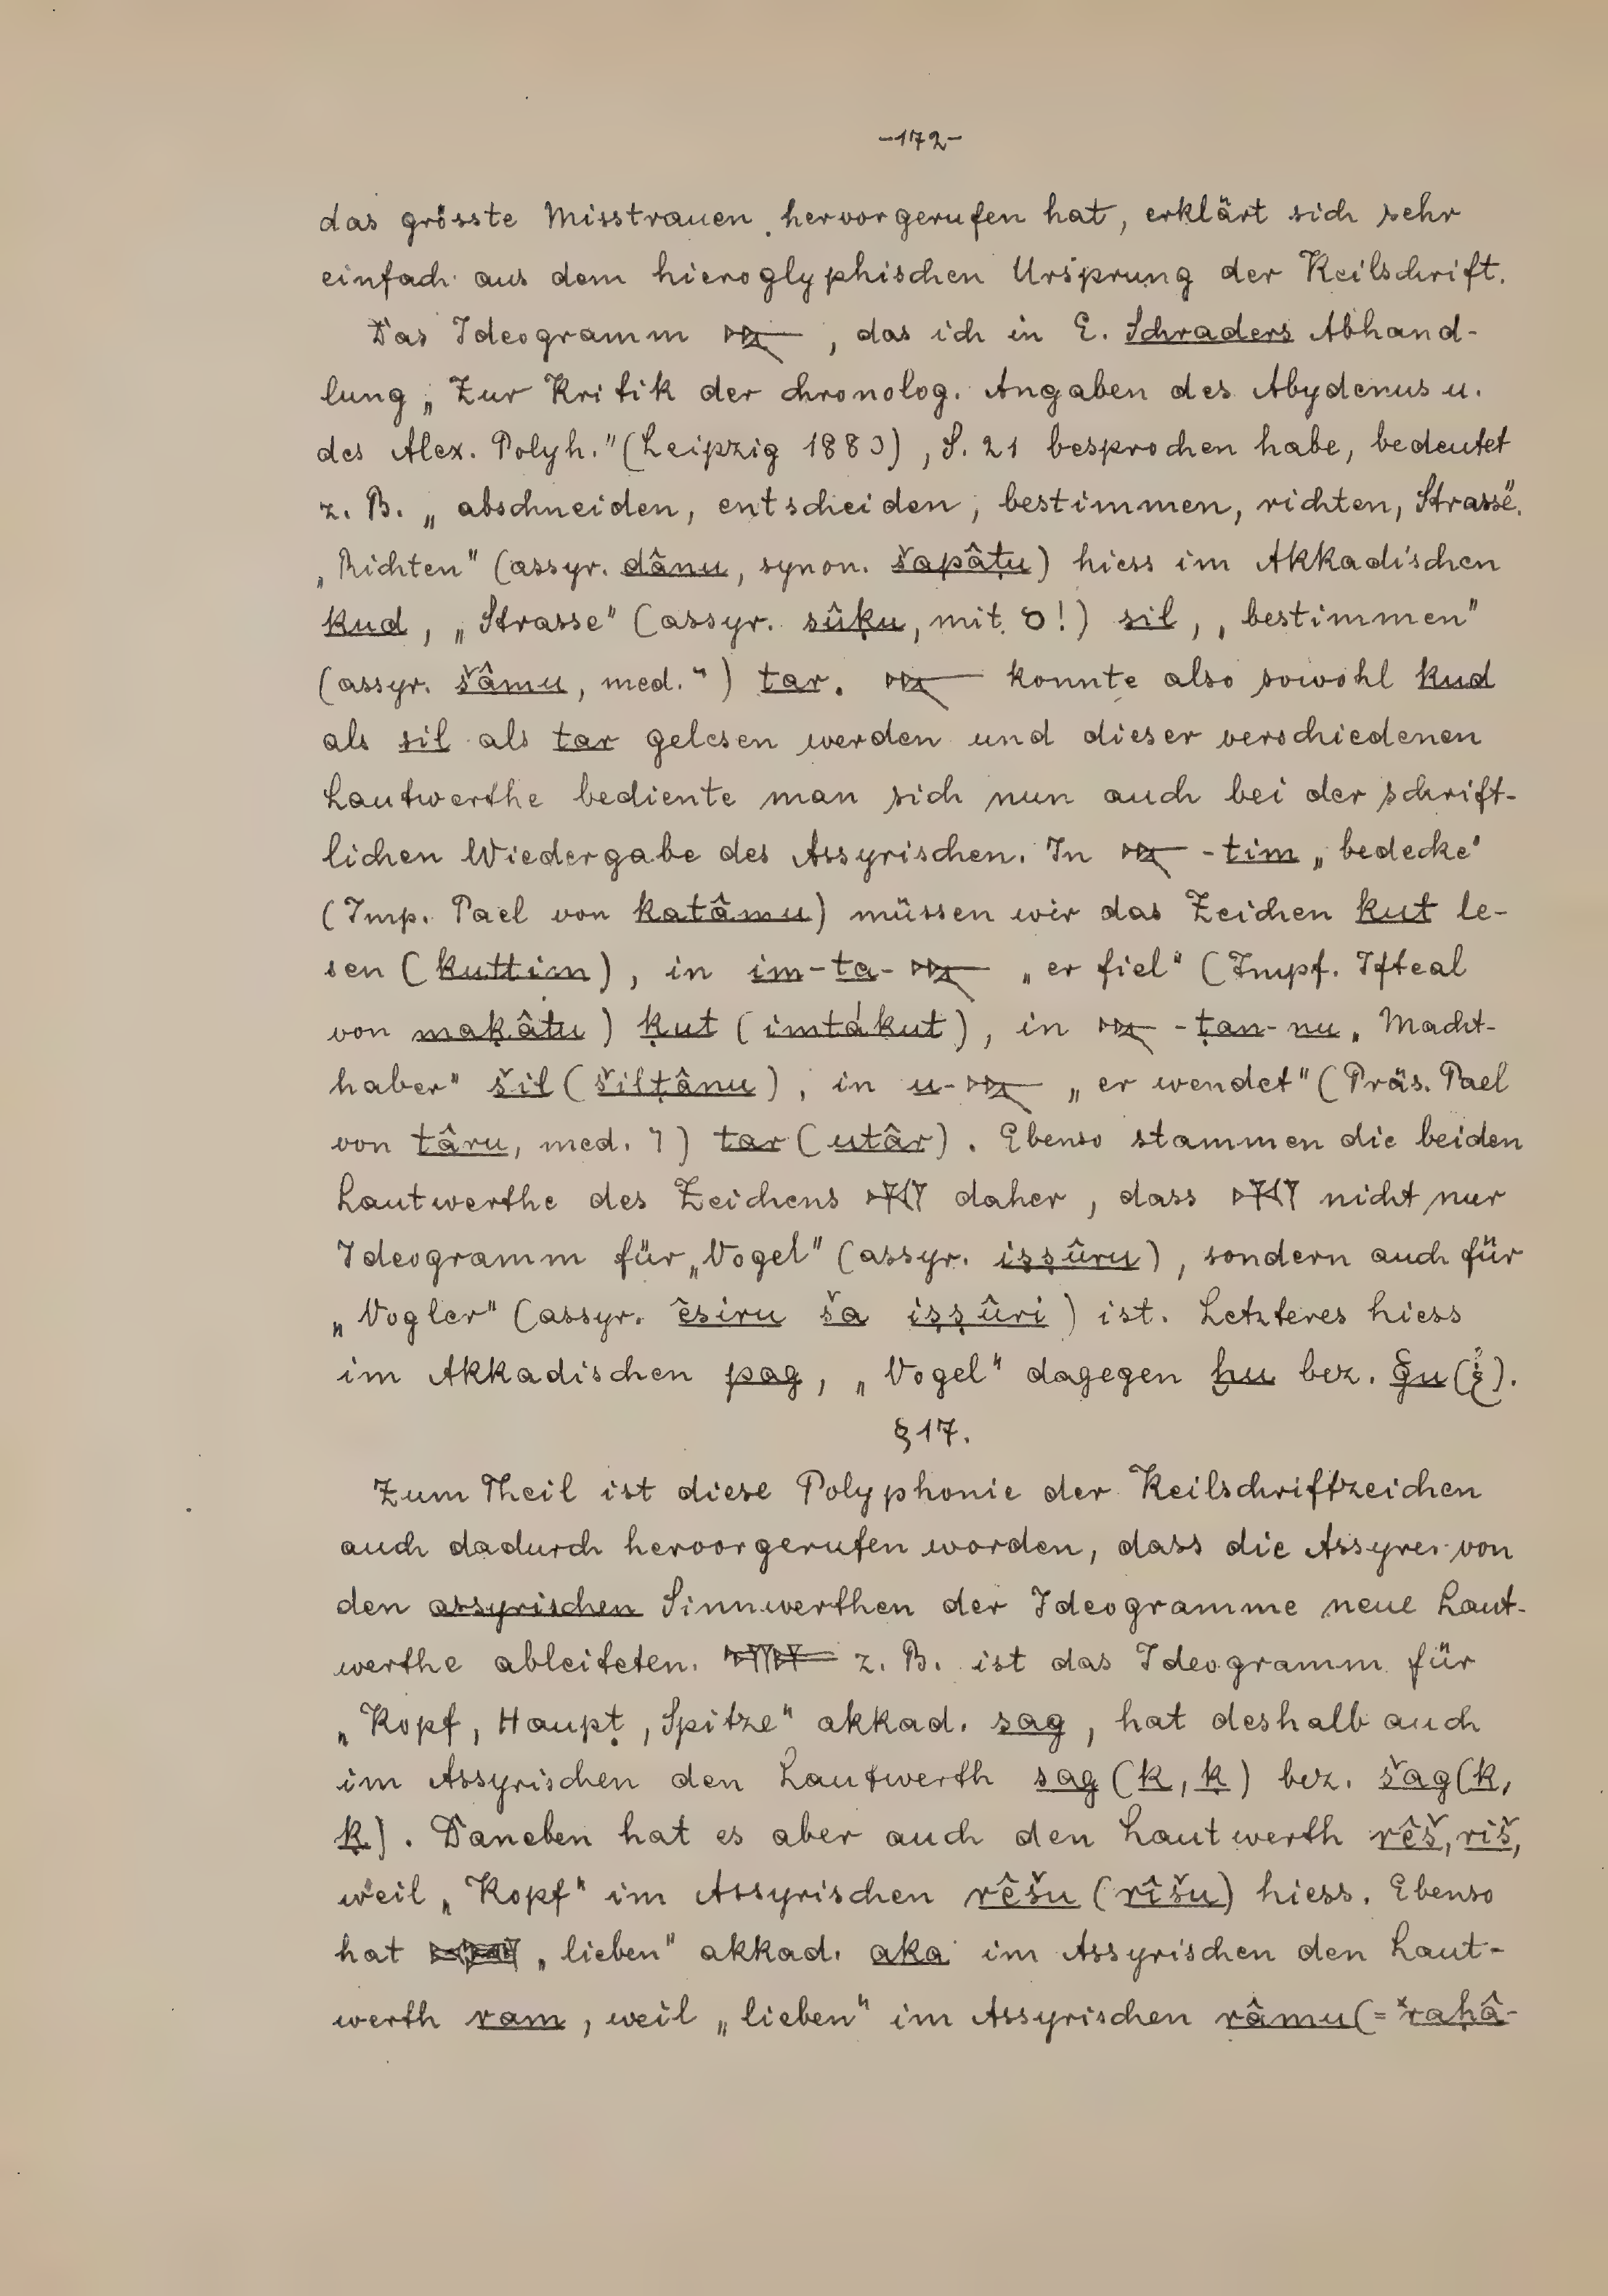 -172-
das grösste Misstrauen hervorgerufen hat, erklärt sich sehr
einfach aus dem hieroglyphischen Ursprung der Keilschrift.
Das Ideogramm 𒋻, das ich in E. Schraders Abhand-
lung „Zur Kritik der chronolog. Angaben des Abydenus u.
des Alex. Polyh." (Leipzig 1880), S. 21 besprochen habe, bedeutet
z. B. „abschneiden, entscheiden, bestimmen, richten, Strasse".
„Richten" (assyr. dânu, synon. šapâṭu) hiess im Akkadischen
kud, „Strasse" (assyr. sûḳu, mit ס!) sil, „bestimmen"
(assyr. šâmu, med. י) tar. 𒋻 konnte also sowohl kud
als sil als tar gelesen werden und dieser verschiedenen
Lautwerthe bediente man sich nun auch bei der schrift-
lichen Wiedergabe des Assyrischen. In 𒋻-tim „bedecke"
(Imp. Pael von katâmu) müssen wir das Zeichen kut le-
sen (kuttim), in im-ta-𒋻 „er fiel" (Impf. Ifteal
von maḳâtu) ḳut (imtáḳut), in 𒋻-ṭan-nu „Macht-
haber" šil (šilṭânu), in u-𒋻 „er wendet" (Präs. Pael
von târu, med. ו) tar (utâr). Ebenso stammen die beiden
Lautwerthe des Zeichens 𒄷 daher, dass 𒄷 nicht nur
Ideogramm für „Vogel" (assyr. iṣṣûru), sondern auch für
„Vogler" (assyr. êsiru ša iṣṣûri) ist. Letzteres hiess
im Akkadischen pag, „Vogel" dagegen ḫu bez. ğu (غ).
§ 17.
Zum Theil ist diese Polyphonie der Keilschriftzeichen
auch dadurch hervorgerufen worden, dass die Assyrer von
den assyrischen Sinnwerthen der Ideogramme neue Laut-
werthe ableiteten. 𒊕 z. B. ist das Ideogramm für
„Kopf, Haupt, Spitze" akkad. sag, hat deshalb auch
im Assyrischen den Lautwerth sag (k, ḳ) bez. šag (k,
ḳ). Daneben hat es aber auch den Lautwerth rêš, riš,
weil „Kopf" im Assyrischen rêšu (rîšu) hiess. Ebenso
hat 𒉘 „lieben" akkad. aka im Assyrischen den Laut-
werth ram, weil „lieben" im Assyrischen râmu (= *raḥâ-